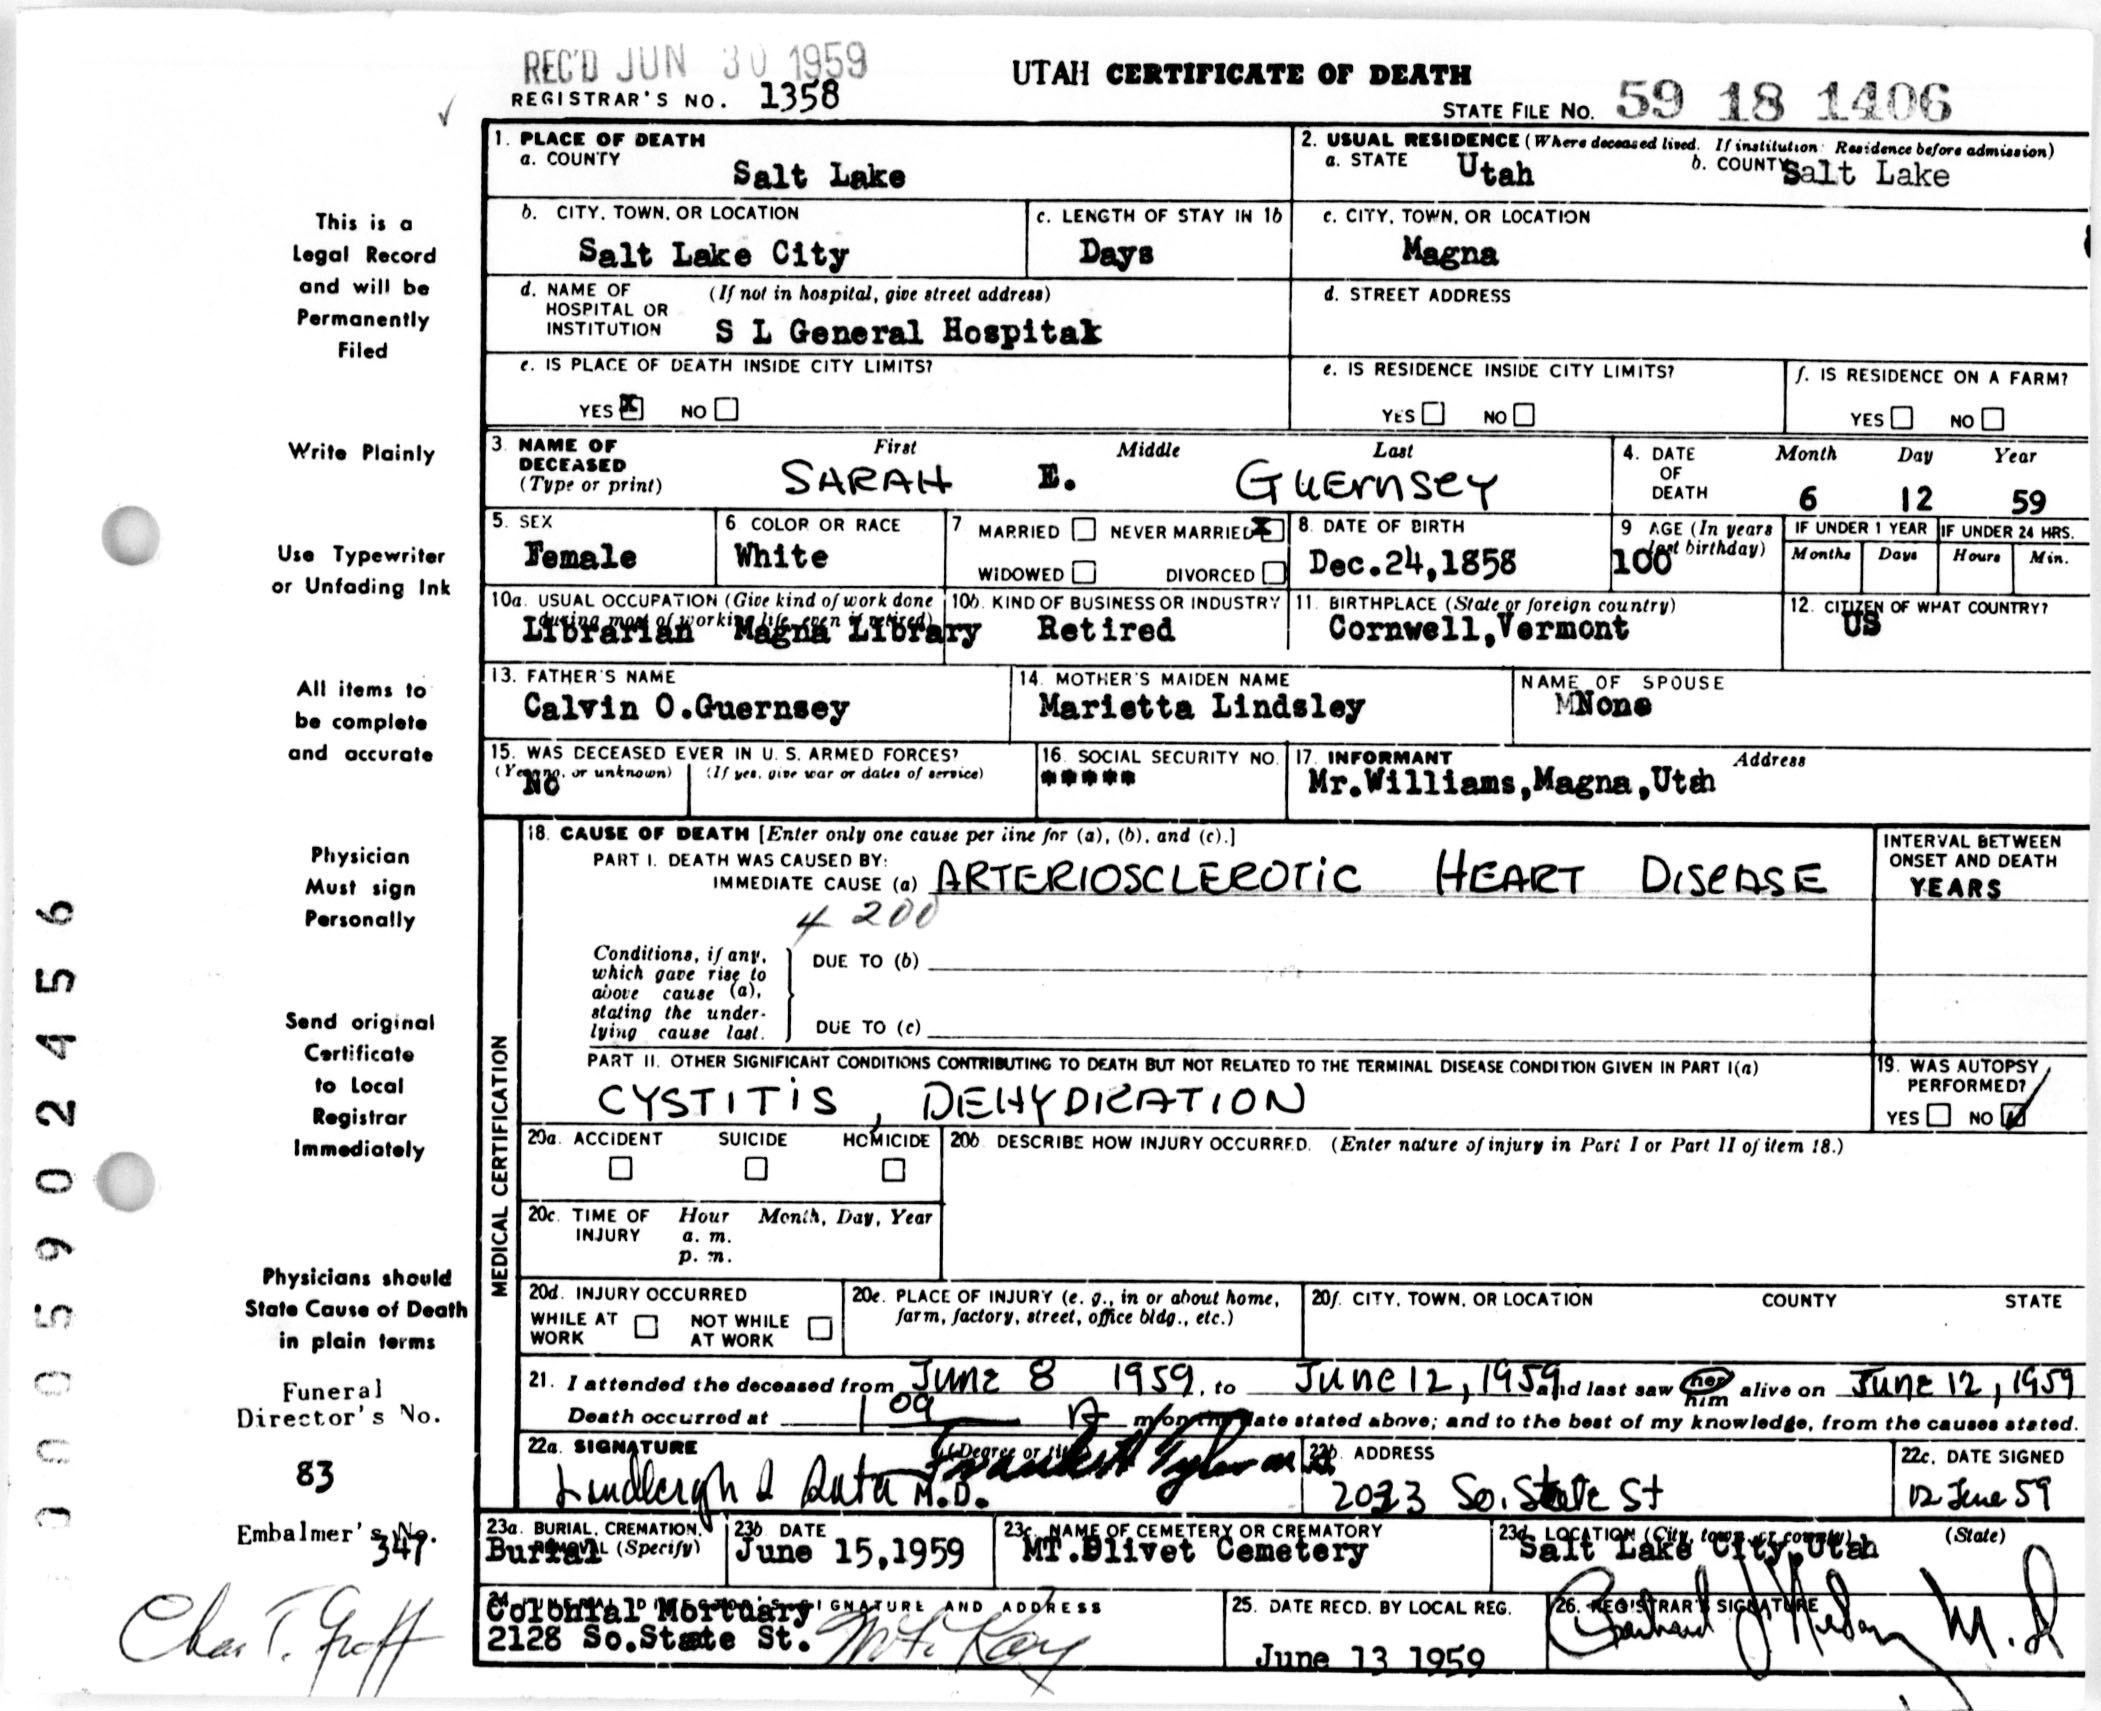 REC'D JUN 30 1959
UTAH CERTIFICATE OF DEATH
REGISTRAR'S NO. 1358
STATE FILE NO. 59 18 1406
This is a
Legal Record
and will be
Permanently
Filed
Write Plainly
Use Typewriter
or Unfading Ink
All items to
be complete
and accurate
Physician
Must sign
Personally
Send original
Certificate
to Local
Registrar
Immediately
Physicians should
State Cause of Death
in plain terms
Funeral
Director's No.
83
Embalmer's No.
347
Chas T. Graff
0005902456
1. PLACE OF DEATH
a. COUNTY
Salt Lake
2. USUAL RESIDENCE (Where deceased lived. If institution: Residence before admission)
a. STATE Utah b. COUNTY Salt Lake
b. CITY, TOWN, OR LOCATION
Salt Lake City
c. LENGTH OF STAY IN 1b
Days
c. CITY, TOWN, OR LOCATION
Magna
d. NAME OF (If not in hospital, give street address)
HOSPITAL OR
INSTITUTION S L General Hospitak
d. STREET ADDRESS
e. IS PLACE OF DEATH INSIDE CITY LIMITS?
YES X NO
e. IS RESIDENCE INSIDE CITY LIMITS?
YES NO
f. IS RESIDENCE ON A FARM?
YES NO
3. NAME OF First Middle Last
DECEASED
(Type or print) SARAH E. GUERNSEY
4. DATE Month Day Year
OF
DEATH 6 12 59
5. SEX
Female
6 COLOR OR RACE
White
7 MARRIED NEVER MARRIED X
WIDOWED DIVORCED
8. DATE OF BIRTH
Dec.24,1858
9 AGE (In years
last birthday)
100
IF UNDER 1 YEAR
Months Days
IF UNDER 24 HRS.
Hours Min.
10a. USUAL OCCUPATION (Give kind of work done
during most of working life, even if retired)
Librarian Magna Library
10b. KIND OF BUSINESS OR INDUSTRY
Retired
11. BIRTHPLACE (State or foreign country)
Cornwell,Vermont
12. CITIZEN OF WHAT COUNTRY?
US
13. FATHER'S NAME
Calvin O.Guernsey
14. MOTHER'S MAIDEN NAME
Marietta Lindsley
NAME OF SPOUSE
MNone
15. WAS DECEASED EVER IN U. S. ARMED FORCES?
(Yes, no, or unknown) (If yes, give war or dates of service)
No
16. SOCIAL SECURITY NO.
*****
17. INFORMANT Address
Mr.Williams,Magna,Utah
MEDICAL CERTIFICATION
18. CAUSE OF DEATH [Enter only one cause per line for (a), (b), and (c).]
PART I. DEATH WAS CAUSED BY:
IMMEDIATE CAUSE (a) ARTERIOSCLEROTIC HEART DISEASE
4 200
INTERVAL BETWEEN
ONSET AND DEATH
YEARS
Conditions, if any,
which gave rise to
above cause (a),
stating the under-
lying cause last.
DUE TO (b)
DUE TO (c)
PART II. OTHER SIGNIFICANT CONDITIONS CONTRIBUTING TO DEATH BUT NOT RELATED TO THE TERMINAL DISEASE CONDITION GIVEN IN PART I(a)
CYSTITIS, DEHYDRATION
19. WAS AUTOPSY
PERFORMED?
YES NO
20a. ACCIDENT SUICIDE HOMICIDE
20b. DESCRIBE HOW INJURY OCCURRED. (Enter nature of injury in Part I or Part II of item 18.)
20c. TIME OF Hour Month, Day, Year
INJURY a. m.
p. m.
20d. INJURY OCCURRED
WHILE AT NOT WHILE
WORK AT WORK
20e. PLACE OF INJURY (e. g., in or about home,
farm, factory, street, office bldg., etc.)
20f. CITY, TOWN, OR LOCATION COUNTY STATE
21. I attended the deceased from June 8 1959, to June 12, 1959 and last saw her him alive on June 12, 1959
Death occurred at 1 09 A m, on the date stated above; and to the best of my knowledge, from the causes stated.
22a. SIGNATURE (Degree or title)
M.D.
22b. ADDRESS
2033 So. State St
22c. DATE SIGNED
12 June 59
23a. BURIAL, CREMATION,
REMOVAL (Specify)
Burial
23b. DATE
June 15,1959
23c. NAME OF CEMETERY OR CREMATORY
MT.Olivet Cemetery
23d. LOCATION (City, town, or county) (State)
Salt Lake City,Utah
24. FUNERAL DIRECTOR'S SIGNATURE AND ADDRESS
Colonial Mortuary
2128 So.State St.
25. DATE RECD. BY LOCAL REG.
June 13 1959
26. REGISTRAR'S SIGNATURE
M.D